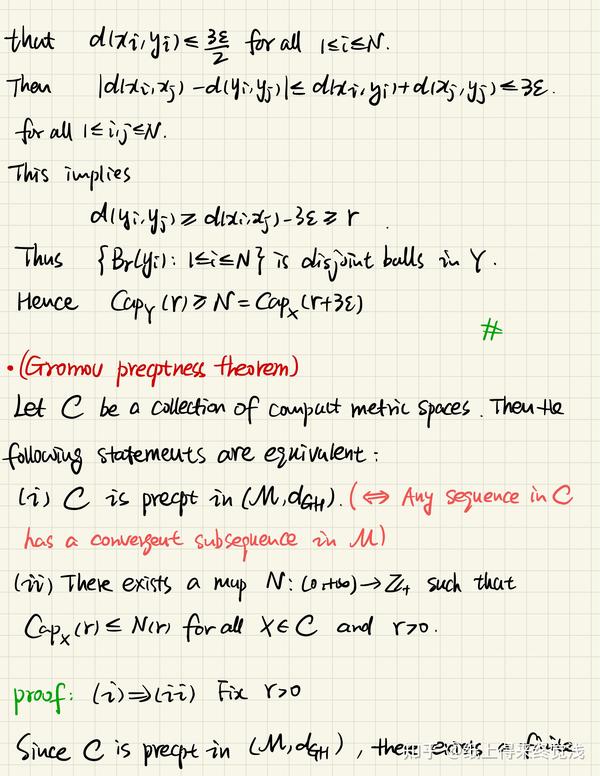 that d(xi,yi) ≤ 3ε/2 for all 1≤i≤N.
Then |d(xi,xj) - d(yi,yj)| ≤ d(xi,yi)+d(xj,yj) ≤ 3ε.
for all 1≤i,j≤N.
This implies
d(yi,yj) ≥ d(xi,xj)-3ε ≥ r .
Thus {Br(yi): 1≤i≤N} is disjoint balls in Y.
Hence CapY(r) ≥ N = CapX(r+3ε)
#
• (Gromov precptness theorem)
Let C be a collection of compact metric spaces. Then the
following statements are equivalent:
(i) C is precpt in (M,dGH). (⇔ Any sequence in C
has a convergent subsequence in M)
(ii) There exists a map N: (0,+∞)→Z+ such that
CapX(r) ≤ N(r) for all X∈C and r>0.
proof: (i)⇒(ii) Fix r>0
Since C is precpt in (M,dGH), there exists a finite
知乎 @纸上得来终觉浅